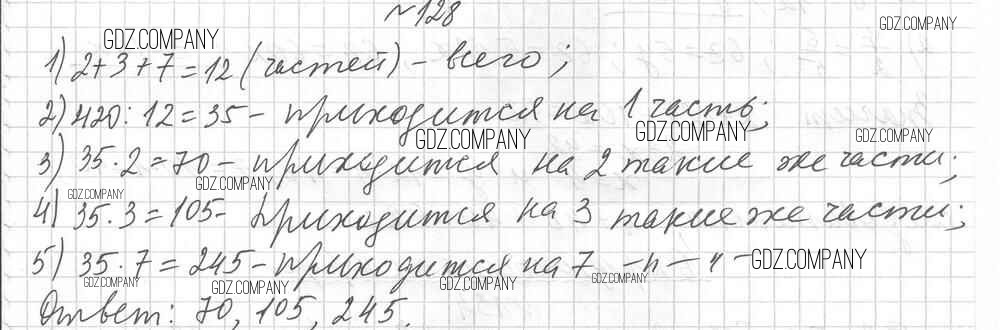 №128
GDZ.COMPANY GDZ.COMPANY
1) 2+3+7=12 (частей) - всего;
2) 420:12=35 - приходится на 1 часть;
GDZ.COMPANY GDZ.COMPANY GDZ.COMPANY
3) 35·2=70 - приходится на 2 такие же части;
GDZ.COMPANY GDZ.COMPANY
4) 35·3=105 - приходится на 3 такие же части;
5) 35·7=245 - приходится на 7 -н-н- GDZ.COMPANY
GDZ.COMPANY GDZ.COMPANY GDZ.COMPANY GDZ.COMPANY
Ответ: 70, 105, 245.